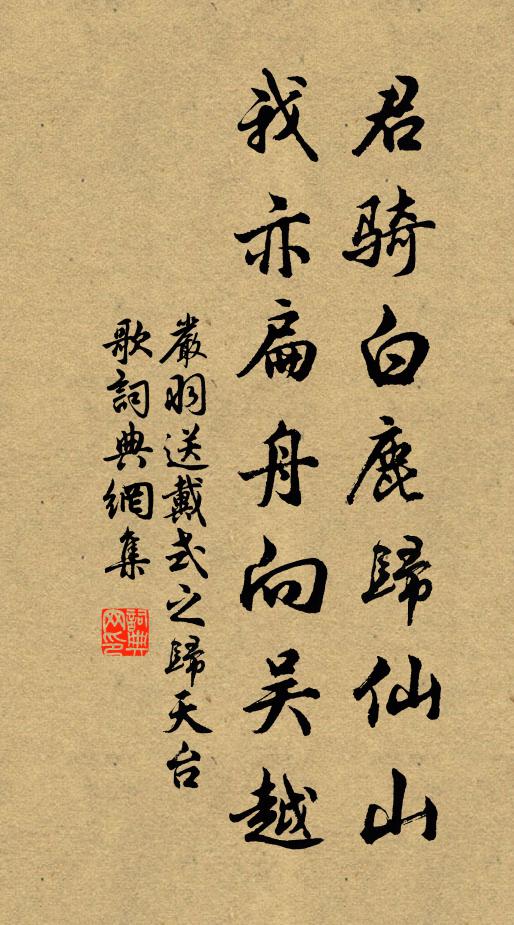 君骑白鹿歸仙山
我亦扁舟向吴越
嚴羽送戴式之歸天台
歌詞典網集
詞典
网印